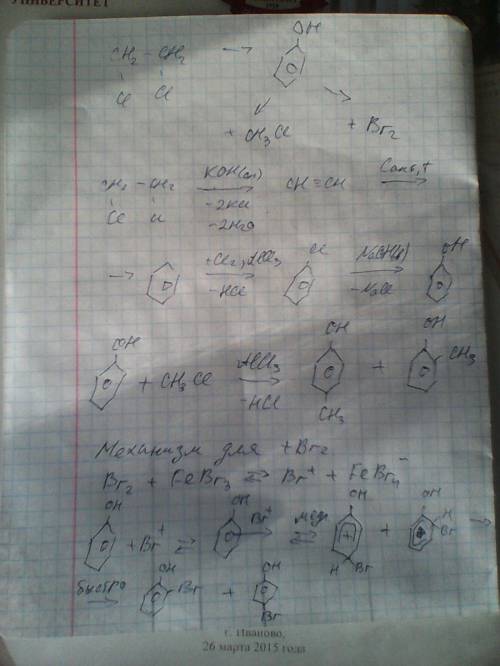 УНИВЕРСИТЕТ
CH₂ — CH₂ → OH
Cl Cl
+ CH₃Cl + Br₂
CH₂ — CH₂ KOH(сп) CH≡CH Cакт, t
Cl Cl -2KCl
-2H₂O
→ +Cl₂, AlCl₃ Cl NaOH(р) OH
-HCl -NaCl
OH + CH₃Cl AlCl₃ OH + OH CH₃
-HCl CH₃
Механизм для +Br₂
Br₂ + FeBr₃ ⇄ Br⁺ + FeBr₄⁻
OH + Br⁺ ⇄ OH Br⁺ медл ⇄ OH + H Br + OH H Br →
быстро → OH Br + OH Br
г. Иваново,
26 марта 2015 года